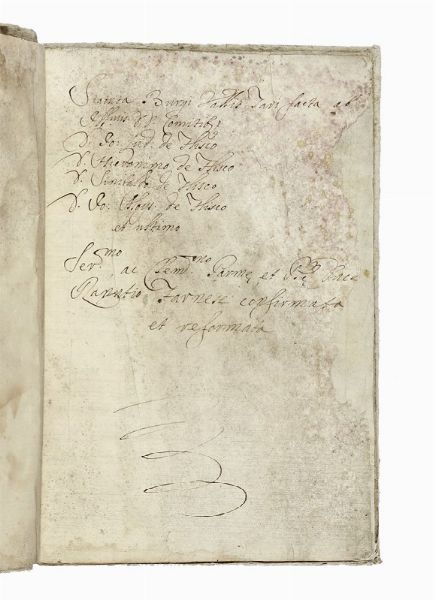 Statuta Burgi Vallis Tari facta ab
Illmis DD. Comitibs
D. Jo: Lud. de Flisco
D. Hieronimo de Flisco
D. Sinibaldo de Flisco
D. Jo: Alois. de Flisco
et ultimo
Ser.mo ac Clem.mo Parmę et Plac.
Ranutio Farnese confirmata
et reformata